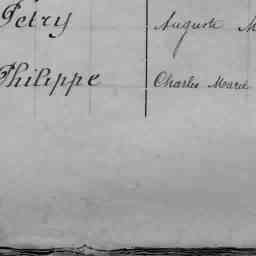 Petry Auguste M
Philippe Charles Marie